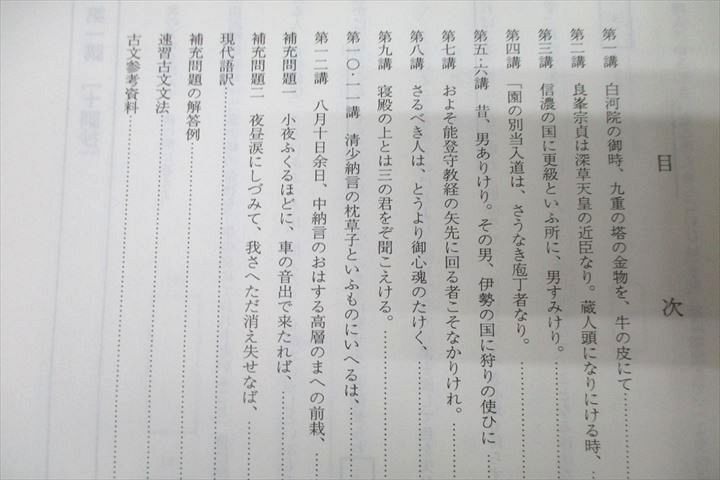 目次
第一講 白河院の御時、九重の塔の金物を、牛の皮にて
第二講 良峯宗貞は深草天皇の近臣なり。蔵人頭になりにける時、
第三講 信濃の国に更級といふ所に、男すみけり。
第四講 「園の別当入道は、さうなき庖丁者なり。
第五・六講 昔、男ありけり。その男、伊勢の国に狩りの使ひに
第七講 およそ能登守教経の矢先に回る者こそなかりけれ。
第八講 さるべき人は、とうより御心魂のたけく、
第九講 寝殿の上とは三の君をぞ聞こえける。
第一〇・一一講 清少納言の枕草子といふものにいへるは、
第一二講 八月十日余日、中納言のおはする高層のまへの前栽、
補充問題一 小夜ふくるほどに、車の音出で来たれば、
補充問題二 夜昼涙にしづみて、我さへただ消え失せなば、
現代語訳
補充問題の解答例
速習古文文法
古文参考資料